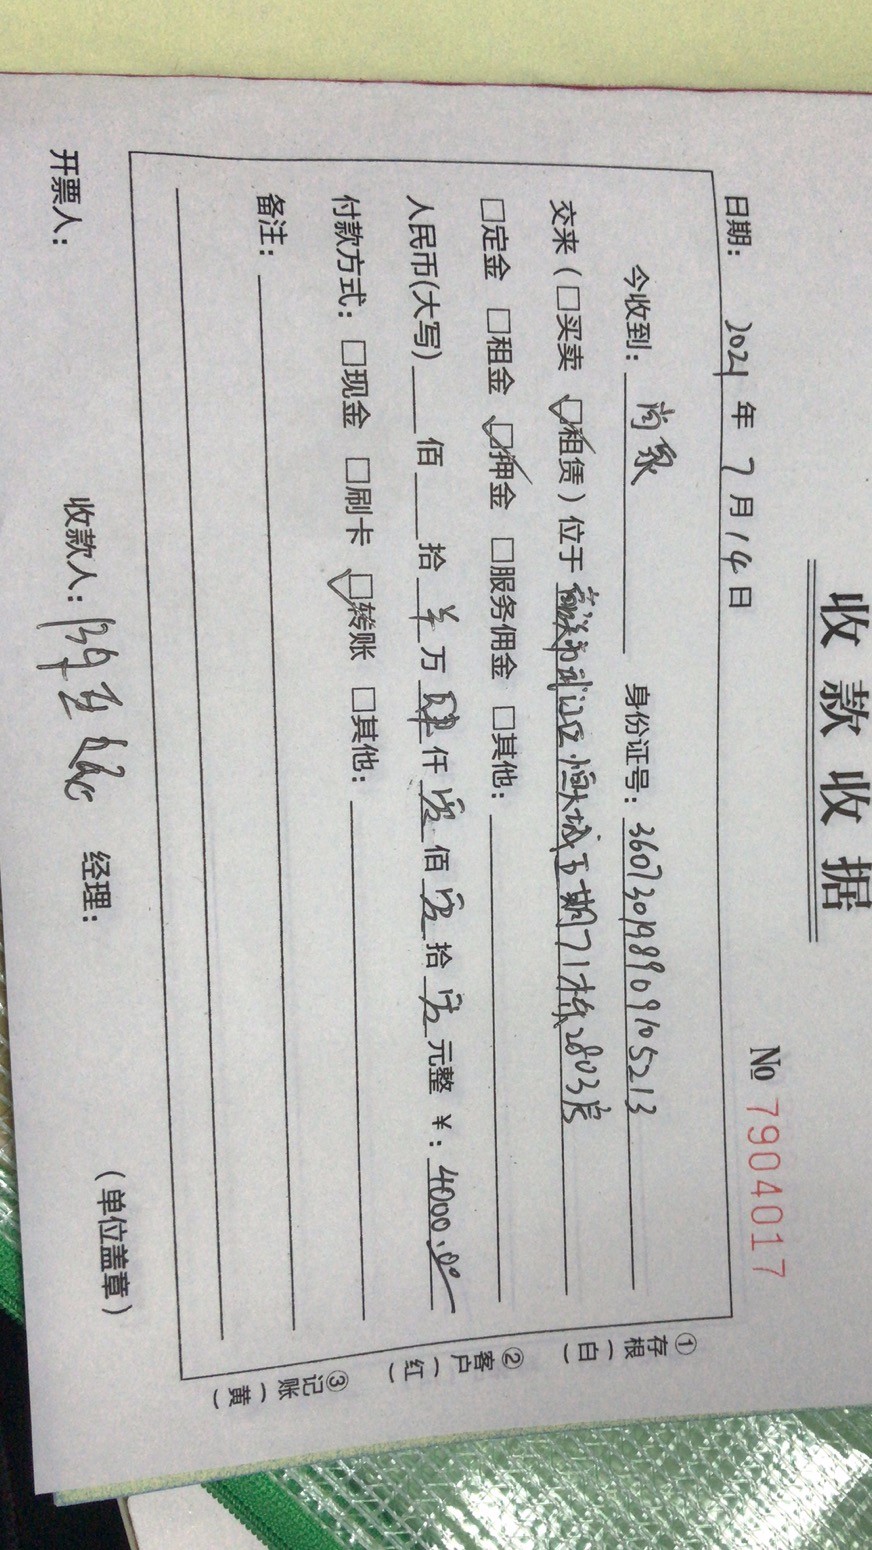 收款收据
№ 7904017
日期： 2021 年 7 月 14 日
今收到： 肖 身份证号：360730198909105213
交来（□买卖 ☑租赁）位于 恒大城五期71栋2803房
□定金 □租金 ☑押金 □服务佣金 □其他：
人民币(大写) 佰 拾 ¥ 万 肆 仟 零 佰 零 拾 零 元整 ¥：4000.00
付款方式：□现金 □刷卡 ☑转账 □其他：
备注：
开票人： 收款人： 经理： （单位盖章）
①存根（白）
②客户（红）
③记账（黄）